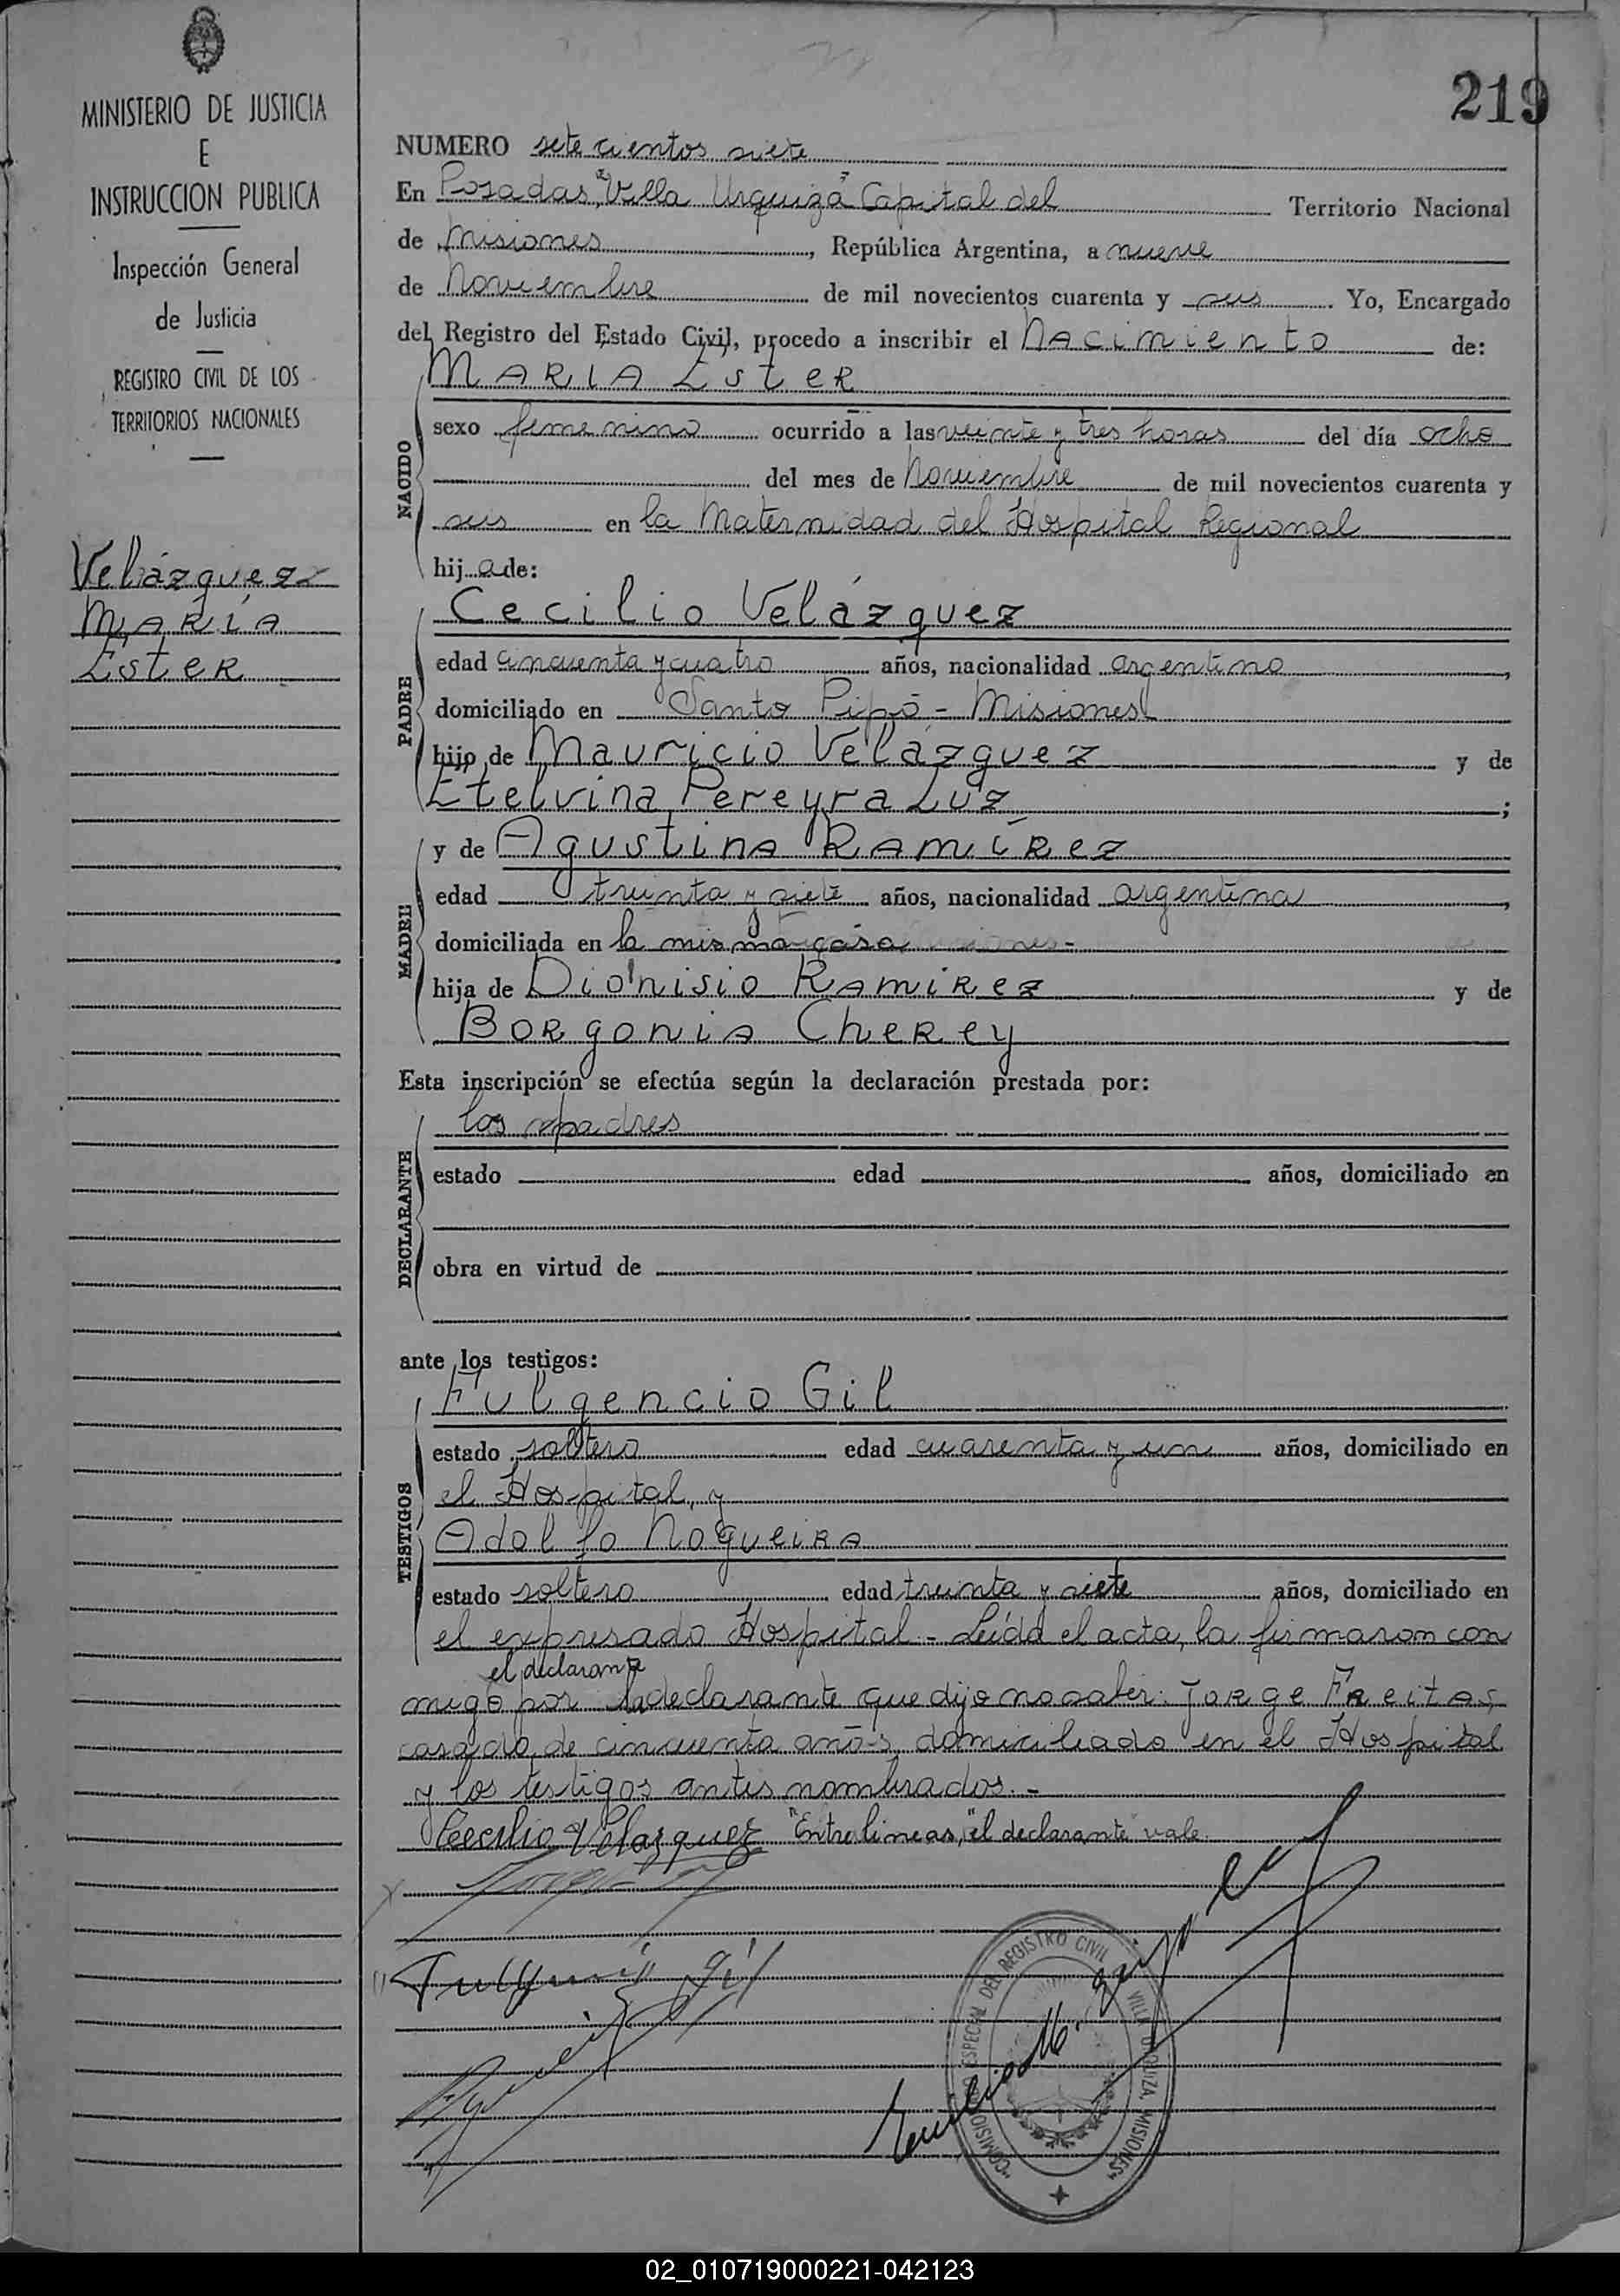 219
MINISTERIO DE JUSTICIA
E
INSTRUCCION PUBLICA
Inspección General
de Justicia
REGISTRO CIVIL DE LOS
TERRITORIOS NACIONALES
Velázquez
MARÍA
Ester
NUMERO sete cientos siete
En Posadas, "Villa Urquiza" Capital del Territorio Nacional
de Misiones, República Argentina, a nueve
de Noviembre de mil novecientos cuarenta y seis. Yo, Encargado
del Registro del Estado Civil, procedo a inscribir el Nacimiento de:
MARIA Ester
NACIDO
sexo femenino ocurrido a las veinte y tres horas del día ocho
del mes de Noviembre de mil novecientos cuarenta y
seis en la Maternidad del Hospital Regional
hij a de:
PADRE
Cecilio Velázquez
edad cincuenta y cuatro años, nacionalidad argentino,
domiciliado en Santo Pipó - Misiones
hijo de Mauricio Velázquez y de
Etelvina Pereyra Luz;
MADRE
y de Agustina Ramírez
edad treinta y siete años, nacionalidad argentina,
domiciliada en la misma casa
hija de Dionisio Ramirez y de
Borgonia Cherey
Esta inscripción se efectúa según la declaración prestada por:
DECLARANTE
los padres
estado edad años, domiciliado en
obra en virtud de
ante los testigos:
TESTIGOS
Fulgencio Gil
estado soltero edad cuarenta y un años, domiciliado en
el Hospital, y
Adolfo Nogueira
estado soltero edad treinta y siete años, domiciliado en
el expresado Hospital - Leída el acta, la firmaron con
el declarante
migo por la declarante que dijo no saber: Jorge Freitas,
casado, de cincuenta años, domiciliado en el Hospital
y los testigos antes nombrados.-
Cecilio Velazquez "Entre lineas, "el declarante" vale.
Gil
COMISION ESPECIAL DEL REGISTRO CIVIL VILLA URQUIZA "MISIONES"
02_010719000221-042123